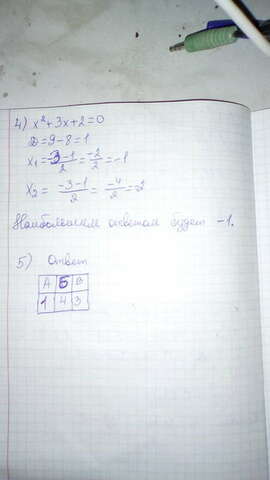 4) x²+3x+2=0
D=9-8=1
x₁=-3-1/2=-2/2=-1
x₂=-3-1/2=-4/2=-2
Наибольшим ответом будет -1.
5) Ответ
А Б В
1 4 3